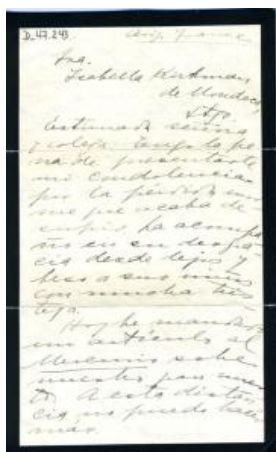 D-47.243
Sra.
Isabella
de Mondaca
Stgo
Estimada señora
y colega: Tengo la pe
na de presentarle
mi condolencia
por la pérdida enor
me que acaba de
sufrir. La acompa
ño en su desgra
cia desde lejos y
beso a sus niños
con mucha tris
teza.
Hoy he mandado
un artículo al
Mercurio sobre
nuestro pan
A esta distan
cia no puedo hacer
más.